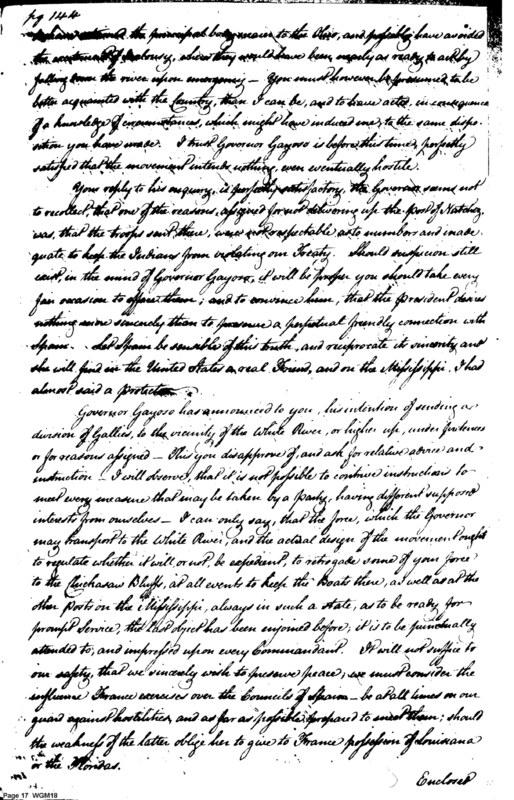 pg 144
have returned the principal body nearer to the Ohio, and possibly have avoided
the excitement of jealousy, where they would have been nearly as ready to act by
falling down the river upon emergency — You must however be presumed to be
better acquainted with the Country, than I can be, and to have acted, in consequence
of a knowledge of circumstances, which might have induced me, to the same dispo-
sition you have made. I trust Governor Gayoso is before this time, perfectly
satisfied that the movement intends nothing, even eventually hostile.
Your reply to his enquiry, is perfectly satisfactory, the Governor seems not
to recollect that one of the reasons, assigned for not delivering up the Post of Natchez,
was, that the troops sent there, were not respectable as to number and inade-
quate to keep the Indians from violating our Treaty. Should suspicion still
exist, in the mind of Governor Gayoso, it will be proper you should take every
fair occasion to efface them; and to convince him, that the President desires
nothing more sincerely than to preserve a perpetual friendly connection with
Spain. Let Spain be sensible of this truth, and reciprocate its sincerity and
she will find in the United States a real Friend, and on the Mississippi, I had
almost said a protection.
Governor Gayoso has announced to you, his intention of sending a
division of Gallies, to the vicinity of the White River, or higher up, under pretences
or for reasons assigned — This you disapprove of, and ask for relative advice and
instruction — I will observe, that it is not possible to contrive instructions to
meet every measure that may be taken by a party, having different supposed
interests from ourselves — I can only say, that the force, which the Governor
may transport to the White River, and the actual design of the movement ought
to regulate whether it will, or not, be expedient, to retrograde some of your force
to the Chickasaw Bluffs, at all events to keep the Boats there, as well as at the
other Posts on the Mississippi, always in such a state, as to be ready for
prompt service, the last object has been enjoined before; it is to be punctually
attended to, and impressed upon every Commandant. It will not suffice to
our safety, that we sincerely wish to preserve peace; we must consider the
influence France exercises over the Councils of Spain — be at all times on our
guard against hostilities, and as far as possible prepared to meet them; should
the weakness of the latter oblige her to give to France possession of Louisiana
or the Floridas.
Enclosed
Page 17 WGM18